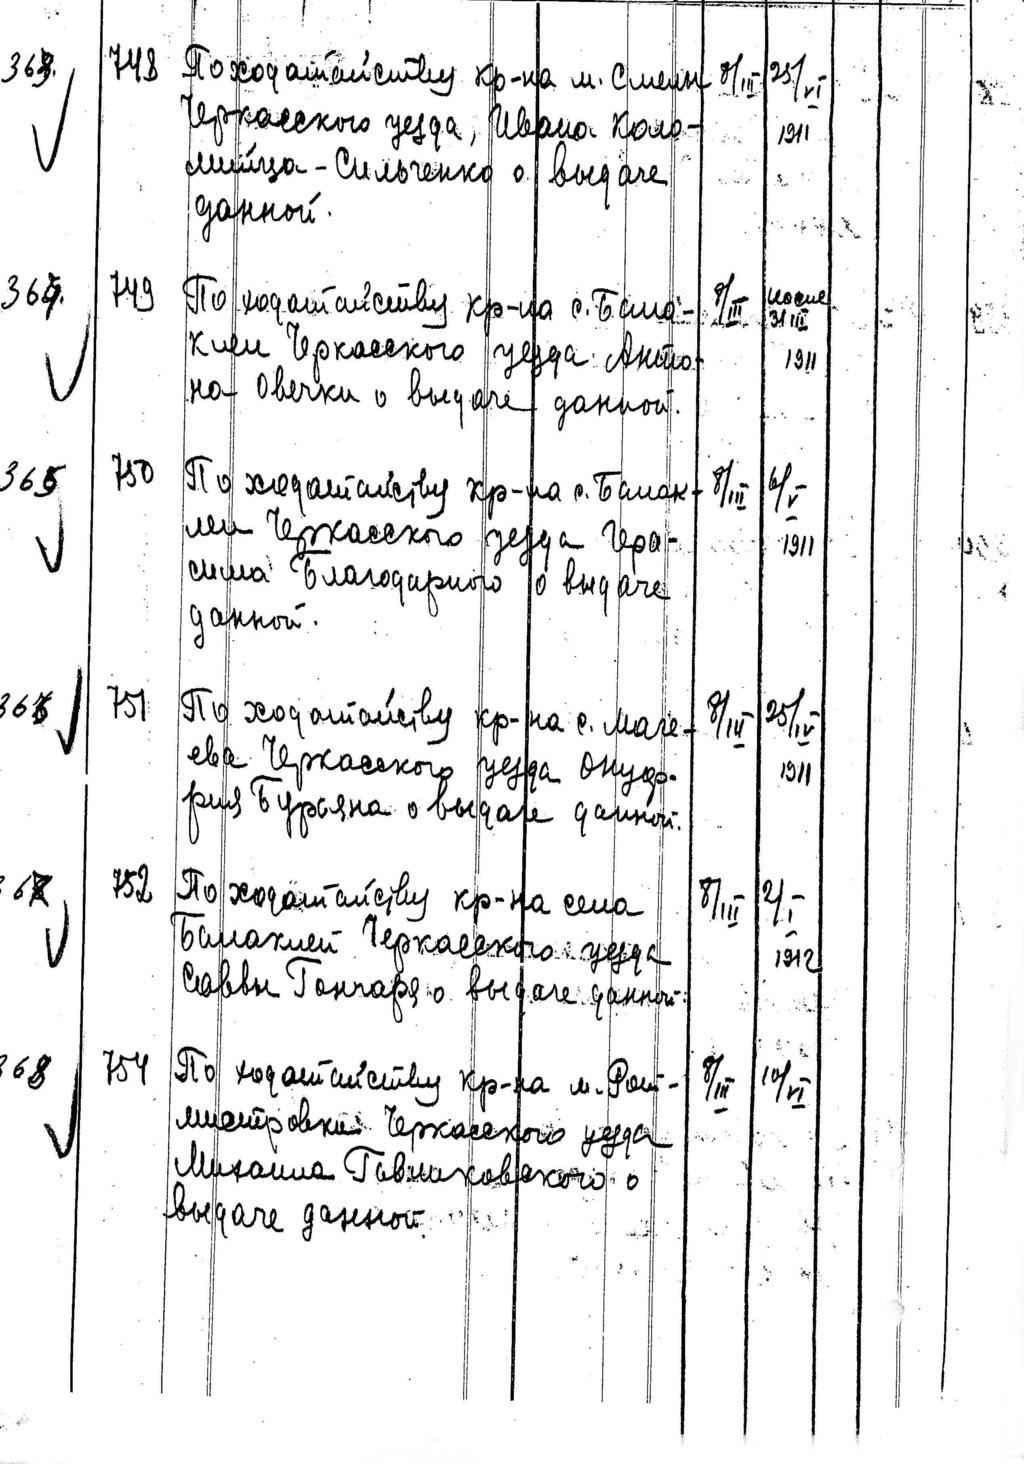 363. 748 По ходатайству кр-на м. Смелы 8/III 25/VI
Черкасского уезда, Ивана Коло- 1911
мийца-Сильченко о выдаче
данной.
364. 749 По ходатайству кр-на с. Бала- 8/III после 31 III
клеи Черкасского уезда Анто- 1911
на Овечки о выдаче данной.
365 750 По ходатайству кр-на с. Балак- 8/III 6/V
леи Черкасского уезда Гера- 1911
сима Благодарного о выдаче
данной.
366 751 По ходатайству кр-на с. Маге- 8/III 25/IV
ева Черкасского уезда Онуф- 1911
рия Бурьяна о выдаче данной.
367 752 По ходатайству кр-на села 8/III 2/I
Балаклей Черкасского уезда 1912
Саввы Гончаря о выдаче данной.
368 754 По ходатайству кр-на м. Рот- 8/III 10/VI
мистровки Черкасского уезда
Михаила о
выдаче данной.